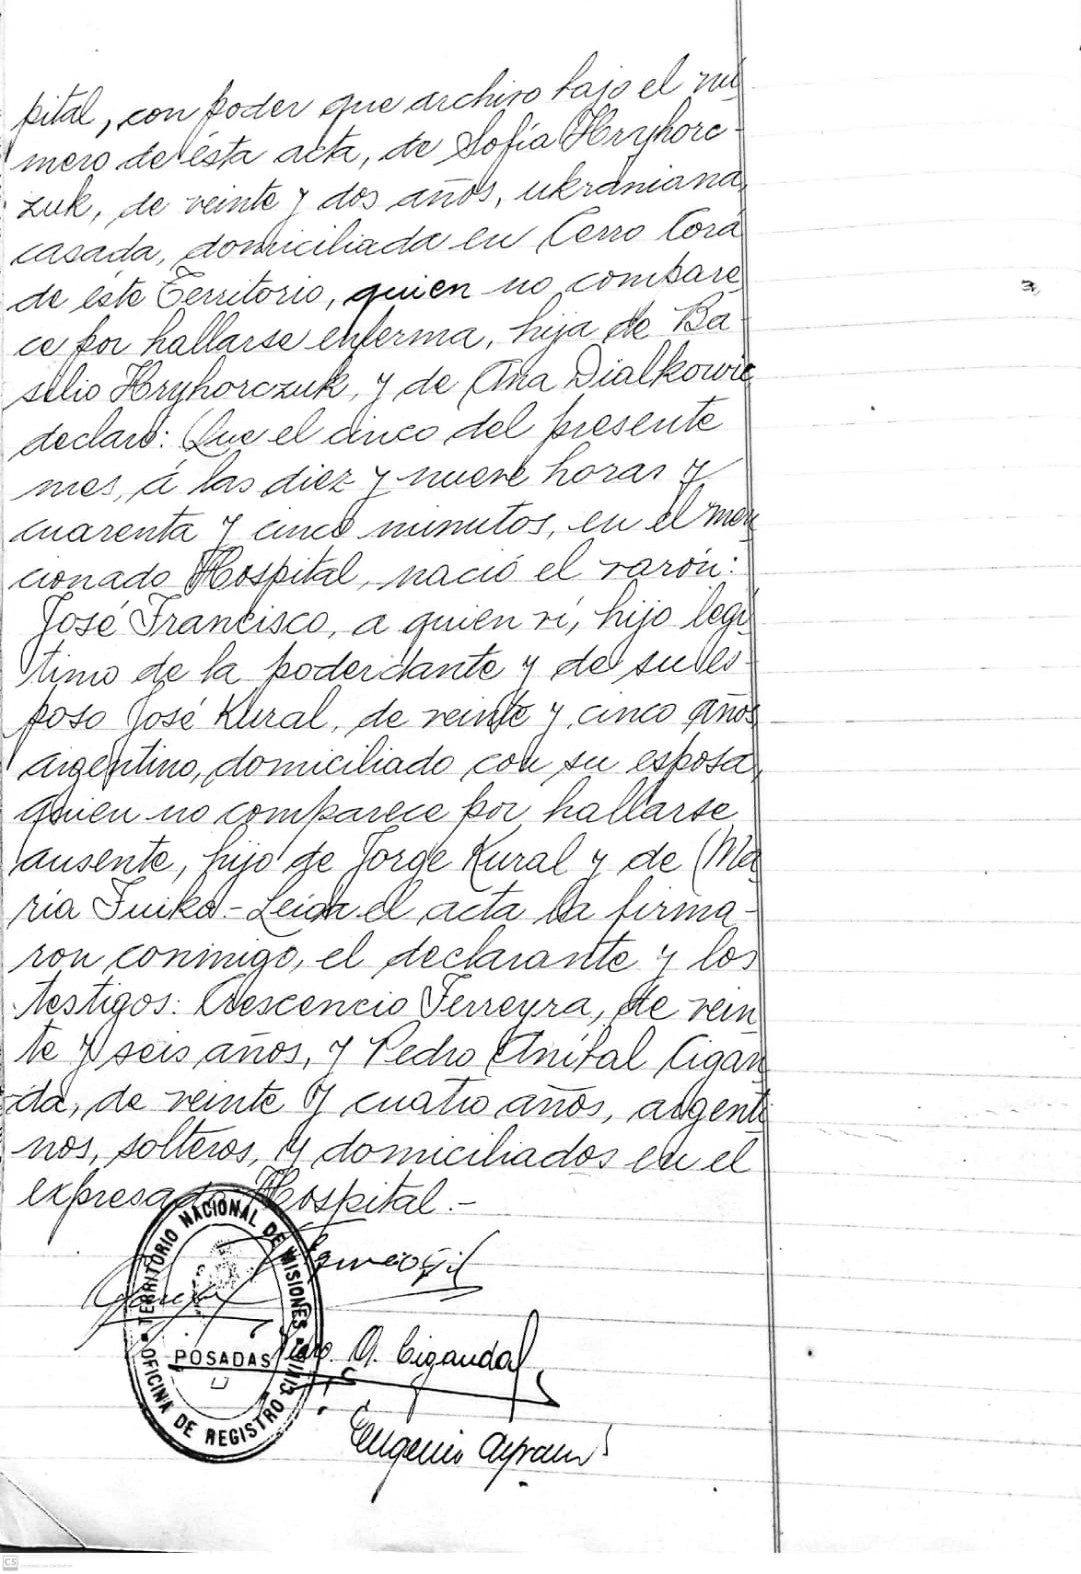 pital, con poder que archivo bajo el nú
mero de ésta acta, de Sofía Hryhorc-
zuk, de veinte y dos años, ukraniana,
casada, domiciliada en Cerro Corá
de éste Territorio, quien no compare
ce por hallarse enferma, hija de Ba-
silio Hryhorczuk, y de Ana Dialkowic
declaró: Que el cinco del presente
mes, á las diez y nueve horas y
cuarenta y cinco minutos, en el men
cionado Hospital, nació el varón:
José Francisco, a quien ví, hijo legí
timo de la poderdante y de su es-
poso José Kural, de veinte y cinco años,
argentino, domiciliado con su esposa,
quien no comparece por hallarse
ausente, hijo de Jorge Kural y de Ma
ría Fuika.- Leída el acta la firma-
ron conmigo, el declarante y los
testigos: Crescencio Ferreyra, de vein
te y seis años, y Pedro Aníbal Cigan
da, de veinte y cuatro años, argenti
nos, solteros, y domiciliados en el
expresado Hospital.-
TERRITORIO NACIONAL DE MISIONES
POSADAS
OFICINA DE REGISTRO CIVIL
A. Ciganda
Eugenio
CS